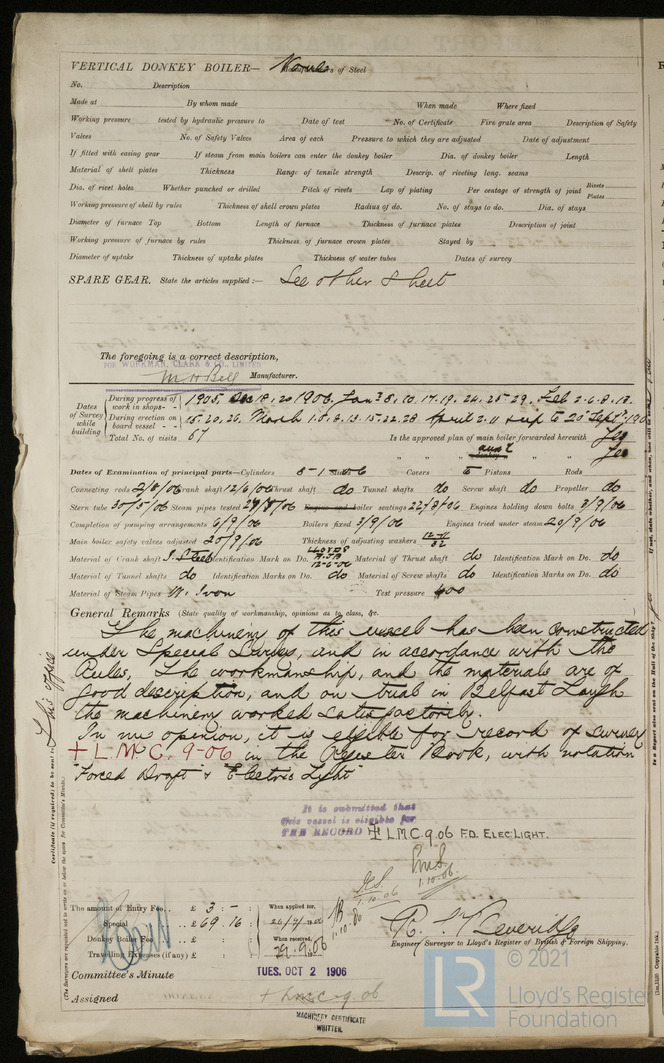 VERTICAL DONKEY BOILER— None of Steel
No. Description
Made at By whom made When made Where fixed
Working pressure tested by hydraulic pressure to Date of test No. of Certificate Fire grate area Description of Safety
Valves No. of Safety Valves Area of each Pressure to which they are adjusted Date of adjustment
If fitted with easing gear If steam from main boilers can enter the donkey boiler Dia. of donkey boiler Length
Material of shell plates Thickness Range of tensile strength Descrip. of riveting long. seams
Dia. of rivet holes Whether punched or drilled Pitch of rivets Lap of plating Per centage of strength of joint Rivets
Plates
Working pressure of shell by rules Thickness of shell crown plates Radius of do. No. of stays to do. Dia. of stays
Diameter of furnace Top Bottom Length of furnace Thickness of furnace plates Description of joint
Working pressure of furnace by rules Thickness of furnace crown plates Stayed by
Diameter of uptake Thickness of uptake plates Thickness of water tubes Dates of survey
SPARE GEAR. State the articles supplied :— See other Sheet
The foregoing is a correct description,
FOR WORKMAN, CLARK & CO., LIMITED
Manufacturer.
Dates of Survey while building
During progress of work in shops - - 1905. Dec 18.20 1906. Jan 3 8.10.17.19.24.25.29. Feb 2.6.8.13.
During erection on board vessel - - 15.20.26. March 1.5.8.13.15.22.28 April 2.11 & up to 20th Sept. 190
Total No. of visits 57 Is the approved plan of main boiler forwarded herewith Yes
" " " " " Yes
Dates of Examination of principal parts—Cylinders 5-1-06 Covers Pistons Rods
Connecting rods 2/8/06 Crank shaft 12/6/06 Thrust shaft do Tunnel shafts do Screw shaft do Propeller do
Stern tube 30/5/06 Steam pipes tested 27/8/06 Engine and boiler seatings 22/8/06 Engines holding down bolts 3/9/06
Completion of pumping arrangements 6/9/06 Boilers fixed 3/9/06 Engines tried under steam 20/9/06
Main boiler safety valves adjusted 20/9/06 Thickness of adjusting washers
Material of Crank shaft I. Steel Identification Mark on Do. 12-6-06 Material of Thrust shaft do Identification Mark on Do. do
Material of Tunnel shafts do Identification Marks on Do. do Material of Screw shafts do Identification Marks on Do. do
Material of Steam Pipes W. Iron Test pressure 400
General Remarks (State quality of workmanship, opinions as to class, &c.
The machinery of this vessel has been constructed
under Special Survey, and in accordance with the
Rules. The workmanship, and the materials are of
good description, and on trial in Belfast Lough
the machinery worked satisfactorily.
In my opinion, it is eligible for record of survey
+ L.M.C. 9-06 in the Register Book, with notation
"Forced Draft & Electric Light"
It is submitted that
this vessel is eligible for
THE RECORD + L.M.C. 9.06 F.D. ELEC. LIGHT.
1.10.06
1.10.06
1.10.06
The amount of Entry Fee .. £ 3 : - : When applied for,
Special .. £ 69.16 :
Donkey Boiler Fee .. £ : : When received,
Travelling Expenses (if any) £ : : 29.9.06
Engineer Surveyor to Lloyd's Register of British & Foreign Shipping.
Committee's Minute TUES. OCT 2 1906
Assigned + L.M.C. 9.06
MACHINERY CERTIFICATE
WRITTEN.
© 2021
LR
Lloyd's Register
Foundation